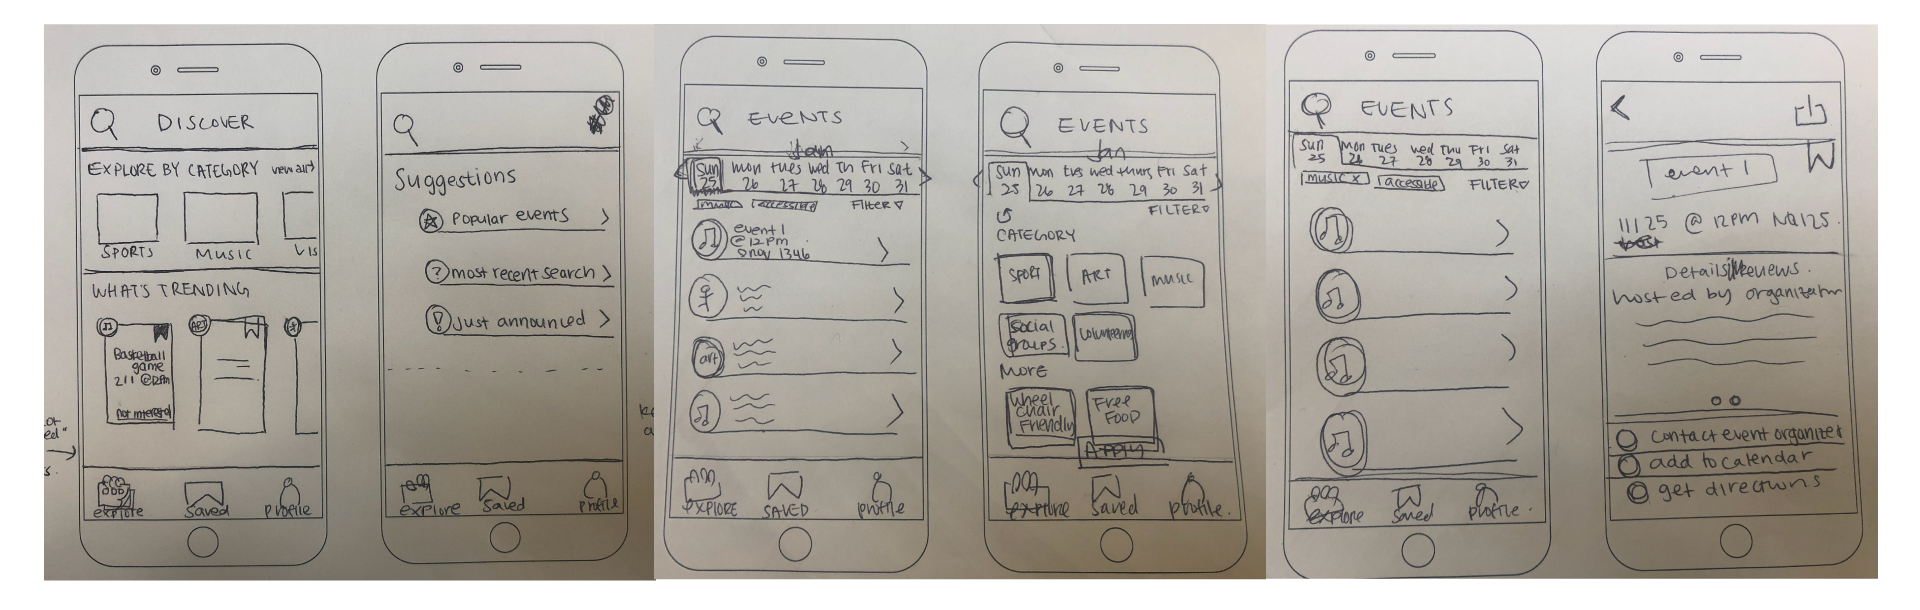 DISCOVER
EXPLORE BY CATEGORY view all >
SPORTS MUSIC VIS
WHAT'S TRENDING
ART
Basketball
game
211 @12pm
not interested
explore Saved profile
Suggestions
Popular events >
? most recent search >
! Just announced >
explore Saved profile
EVENTS
Jan
< Sun mon tues wed Th Fri Sat >
25 26 27 28 29 30 31
music accessible FILTER
event 1
@ 12pm
@ nq 1346
art
EXPLORE SAVED profile
EVENTS
Jan
< Sun mon tues wed thurs Fri Sat >
25 26 27 28 29 30 31
FILTER
CATEGORY
SPORT ART music
Social
groups
volunteering
MORE
Wheel
chair
Friendly
Free
FOOD
APPLY
explore Saved profile.
EVENTS
Sun Mon Tues wed Thu Fri Sat
25 26 27 28 29 30 31
music x accessible FILTER
explore Saved profile.
event 1
11125 @ 12pm NQ125.
Details Reviews.
hosted by organizer
contact event organizer
add to calendar
get directions